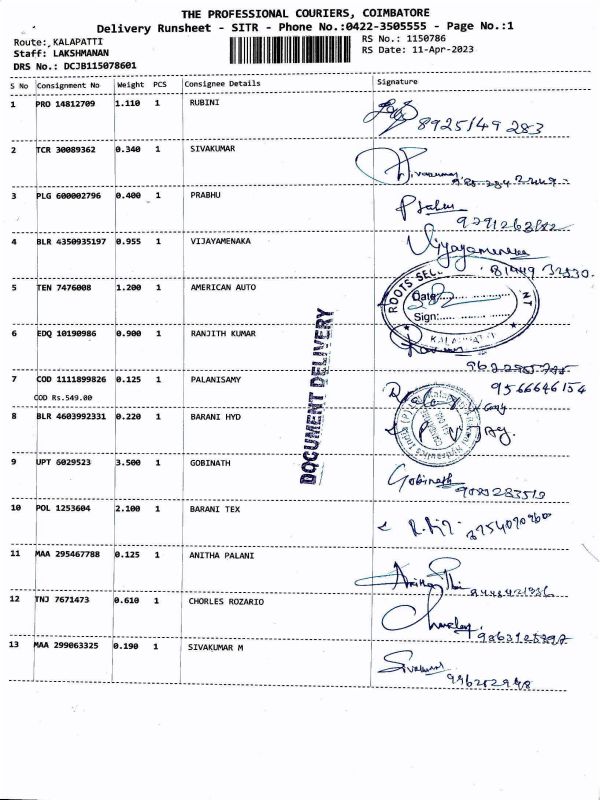 THE PROFESSIONAL COURIERS, COIMBATORE
Delivery Runsheet - SITR - Phone No.:0422-3505555 - Page No.:1
Route: KALAPATTI RS No.: 1150786
Staff: LAKSHMANAN RS Date: 11-Apr-2023
DRS No.: DCJB115078601
S No Consignment No Weight PCS Consignee Details Signature
1 PRO 14812709 1.110 1 RUBINI
8925149283
2 TCR 30089362 0.340 1 SIVAKUMAR
Sivakumar
3 PLG 600002796 0.400 1 PRABHU
Prabhu
4 BLR 4350935197 0.955 1 VIJAYAMENAKA Vijayamenaka
5 TEN 7476008 1.200 1 AMERICAN AUTO
ROOTS
Date:
Sign:
6 EDQ 10190986 0.900 1 RANJITH KUMAR
DOCUMENT DELIVERY
7 COD 1111899826 0.125 1 PALANISAMY
9566646154
COD Rs.549.00
8 BLR 4603992331 0.220 1 BARANI HYD
9 UPT 6029523 3.500 1 GOBINATH Gobinath
10 POL 1253604 2.100 1 BARANI TEX
11 MAA 295467788 0.125 1 ANITHA PALANI
12 TNJ 7671473 0.610 1 CHORLES ROZARIO
13 MAA 299063325 0.190 1 SIVAKUMAR M Sivakumar